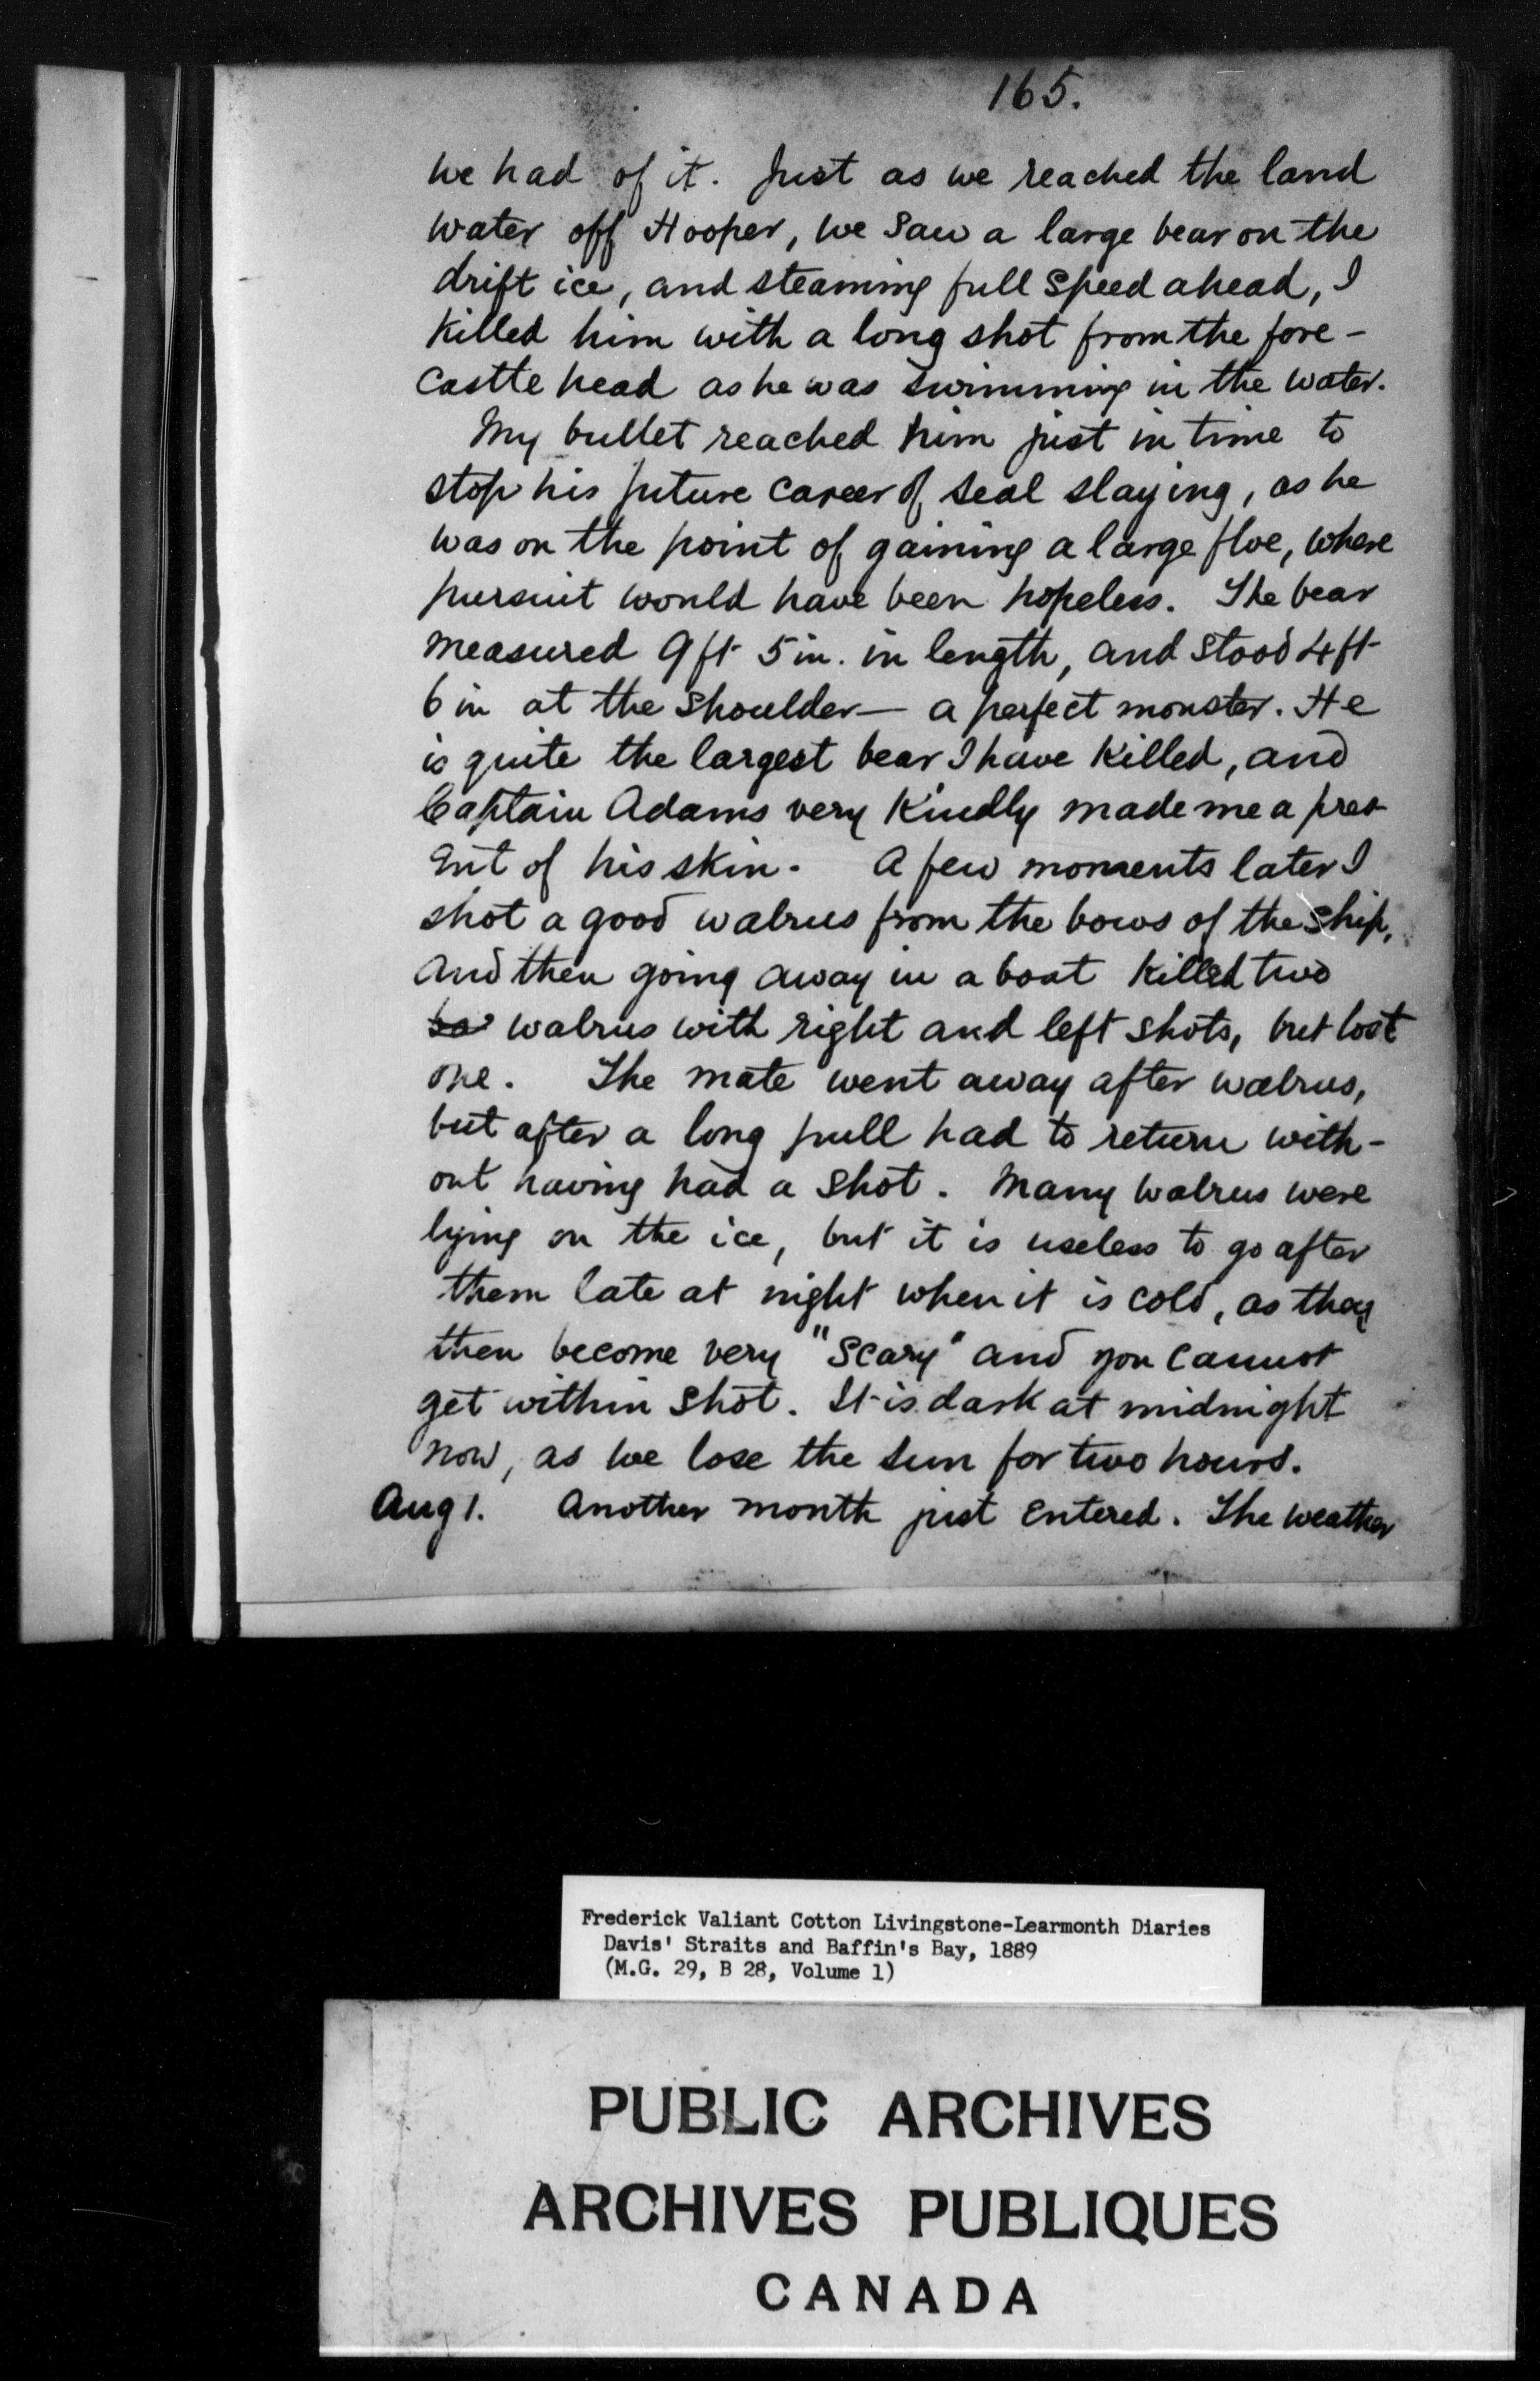 165.
we had of it. Just as we reached the land
water off Hooper, we saw a large bear on the
drift ice, and steaming full speed ahead, I
killed him with a long shot from the fore-
castle head as he was swimming in the water.
My bullet reached him just in time to
stop his future career of seal slaying, as he
was on the point of gaining a large floe, where
pursuit would have been hopeless. The bear
measured 9 ft 5 in. in length, and stood 4 ft
6 in at the shoulder — a perfect monster. He
is quite the largest bear I have killed, and
Captain Adams very kindly made me a pres-
ent of his skin. A few moments later I
shot a good walrus from the bows of the ship,
and then going away in a boat killed two
walrus with right and left shots, but lost
one. The mate went away after walrus,
but after a long pull had to return with-
out having had a shot. Many walrus were
lying on the ice, but it is useless to go after
them late at night when it is cold, as they
then become very "scary" and you cannot
get within shot. It is dark at midnight
now, as we lose the sun for two hours.
Aug 1. Another month just entered. The weather
Frederick Valiant Cotton Livingstone-Learmonth Diaries
Davis' Straits and Baffin's Bay, 1889
(M.G. 29, B 28, Volume 1)
PUBLIC ARCHIVES
ARCHIVES PUBLIQUES
CANADA